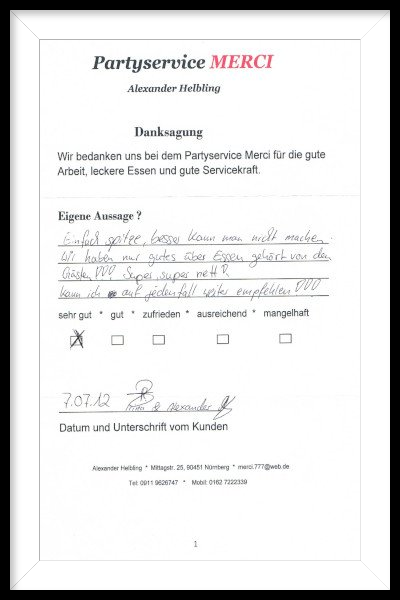 Partyservice MERCI
Alexander Helbling
Danksagung
Wir bedanken uns bei dem Partyservice Merci für die gute
Arbeit, leckere Essen und gute Servicekraft.
Eigene Aussage ?
Einfach spitze, besser kann man nicht machen.
Wir haben nur gutes über Essen gehört von den
Gästen !!! Super, super nett
kann ich auf jedenfall weiter empfehlen !!!
sehr gut * gut * zufrieden * ausreichend * mangelhaft
7.07.12 & Alexander
Datum und Unterschrift vom Kunden
Alexander Helbling * Mittagstr. 25, 90451 Nürnberg * merci.777@web.de
Tel: 0911 9626747 * Mobil: 0162 7222339
1